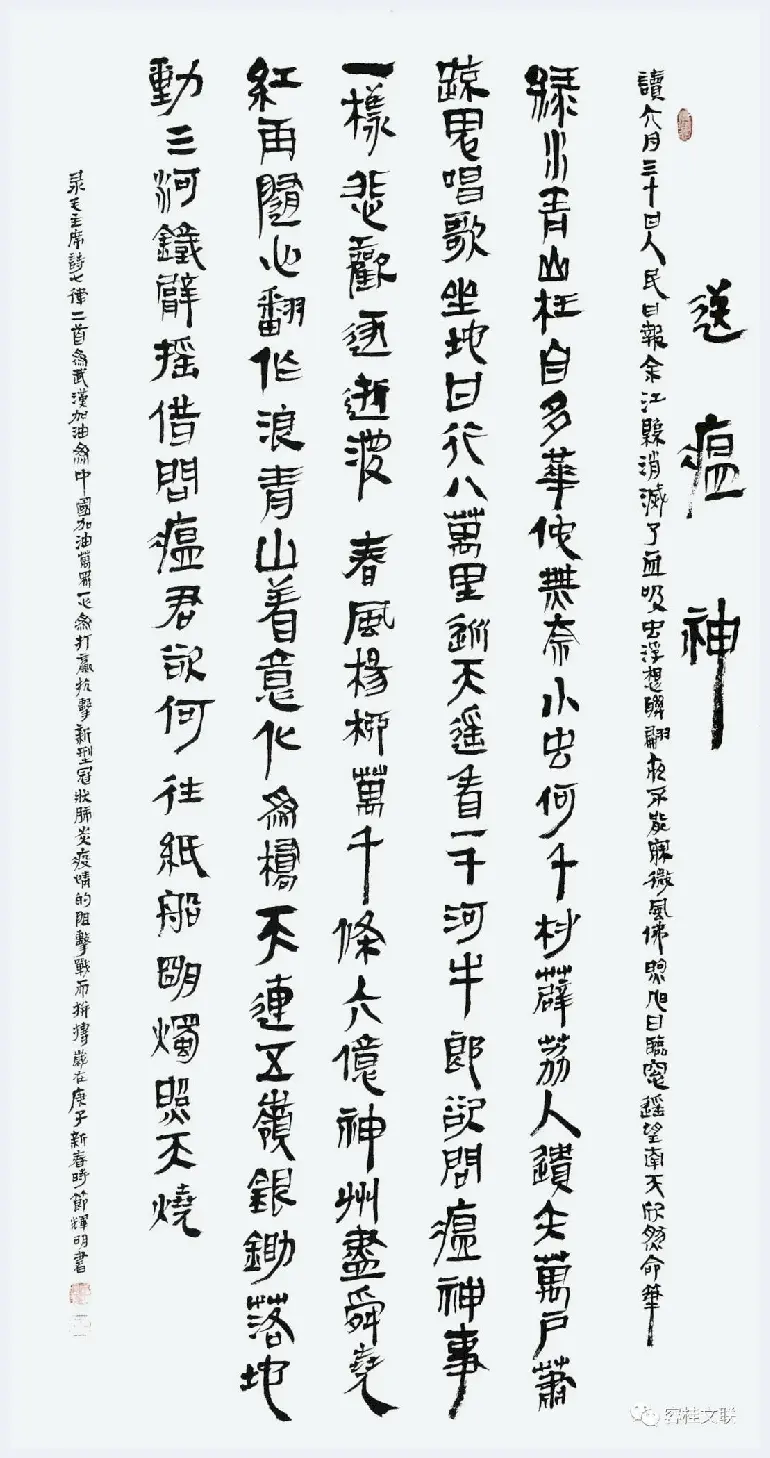 送瘟神
讀六月三十日人民日報余江縣消滅了血吸虫浮想聯翩夜不能寐微風佛煦旭日臨窓遥望南天欣然命筆
緑水青山枉自多華佗無奈小虫何千村薜荔人遺矢萬戶蕭
疏鬼唱歌坐地日行八萬里巡天遥看一千河牛郎欲問瘟神事
一樣悲歡逐逝波 春風楊柳萬千條六億神州盡舜堯
紅雨隨心翻作浪青山着意化為橋天連五嶺銀鋤落地
動三河鐵臂摇借問瘟君欲何往紙船明燭照天燒
录毛主席詩七律二首為武漢加油為中國加油萬眾一心為打贏抗擊新型冠狀肺炎疫情的阻擊戰而拚搏歲在庚子新春時節輝明書
容桂文联